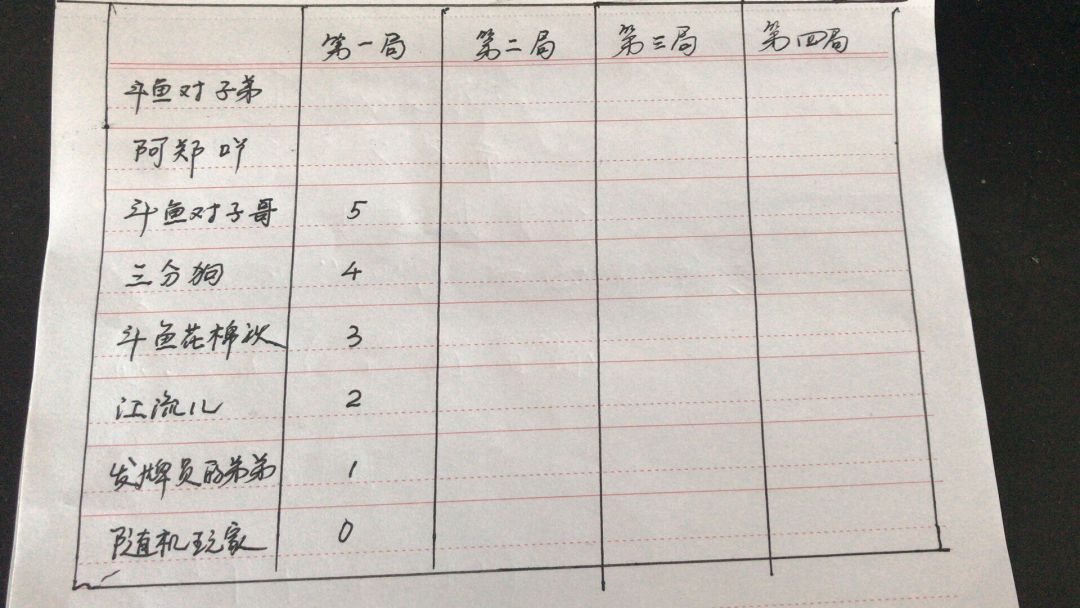 第一局 第二局 第三局 第四局
斗鱼对子弟
阿郑吖
斗鱼对子哥 5
三分狗 4
斗鱼花棉袄 3
江流儿 2
发牌员的弟弟 1
随机玩家 0